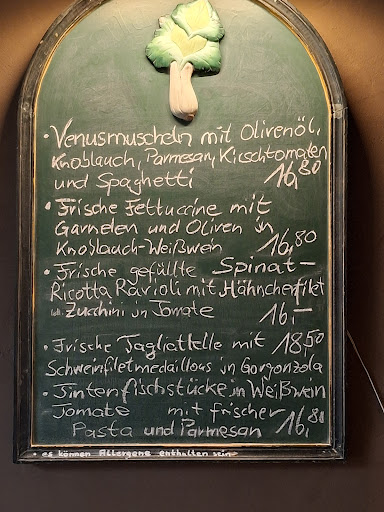 • Venusmuscheln mit Olivenöl,
Knoblauch, Parmesan, Kirschtomaten
und Spaghetti 16,80
• Frische Fettuccine mit
Garnelen und Oliven in
Knoblauch-Weißwein 16,80
• Frische gefüllte Spinat-
Ricotta Ravioli mit Hähnchenfilet
Zucchini in Tomate 16,-
• Frische Tagliattelle mit 18,50
Schweinfiletmedaillous in Gorgonzola
• Tintenfischstücke in Weißwein
Tomate mit frischer
Pasta und Parmesan 16,80
• es können Allergene enthalten sein